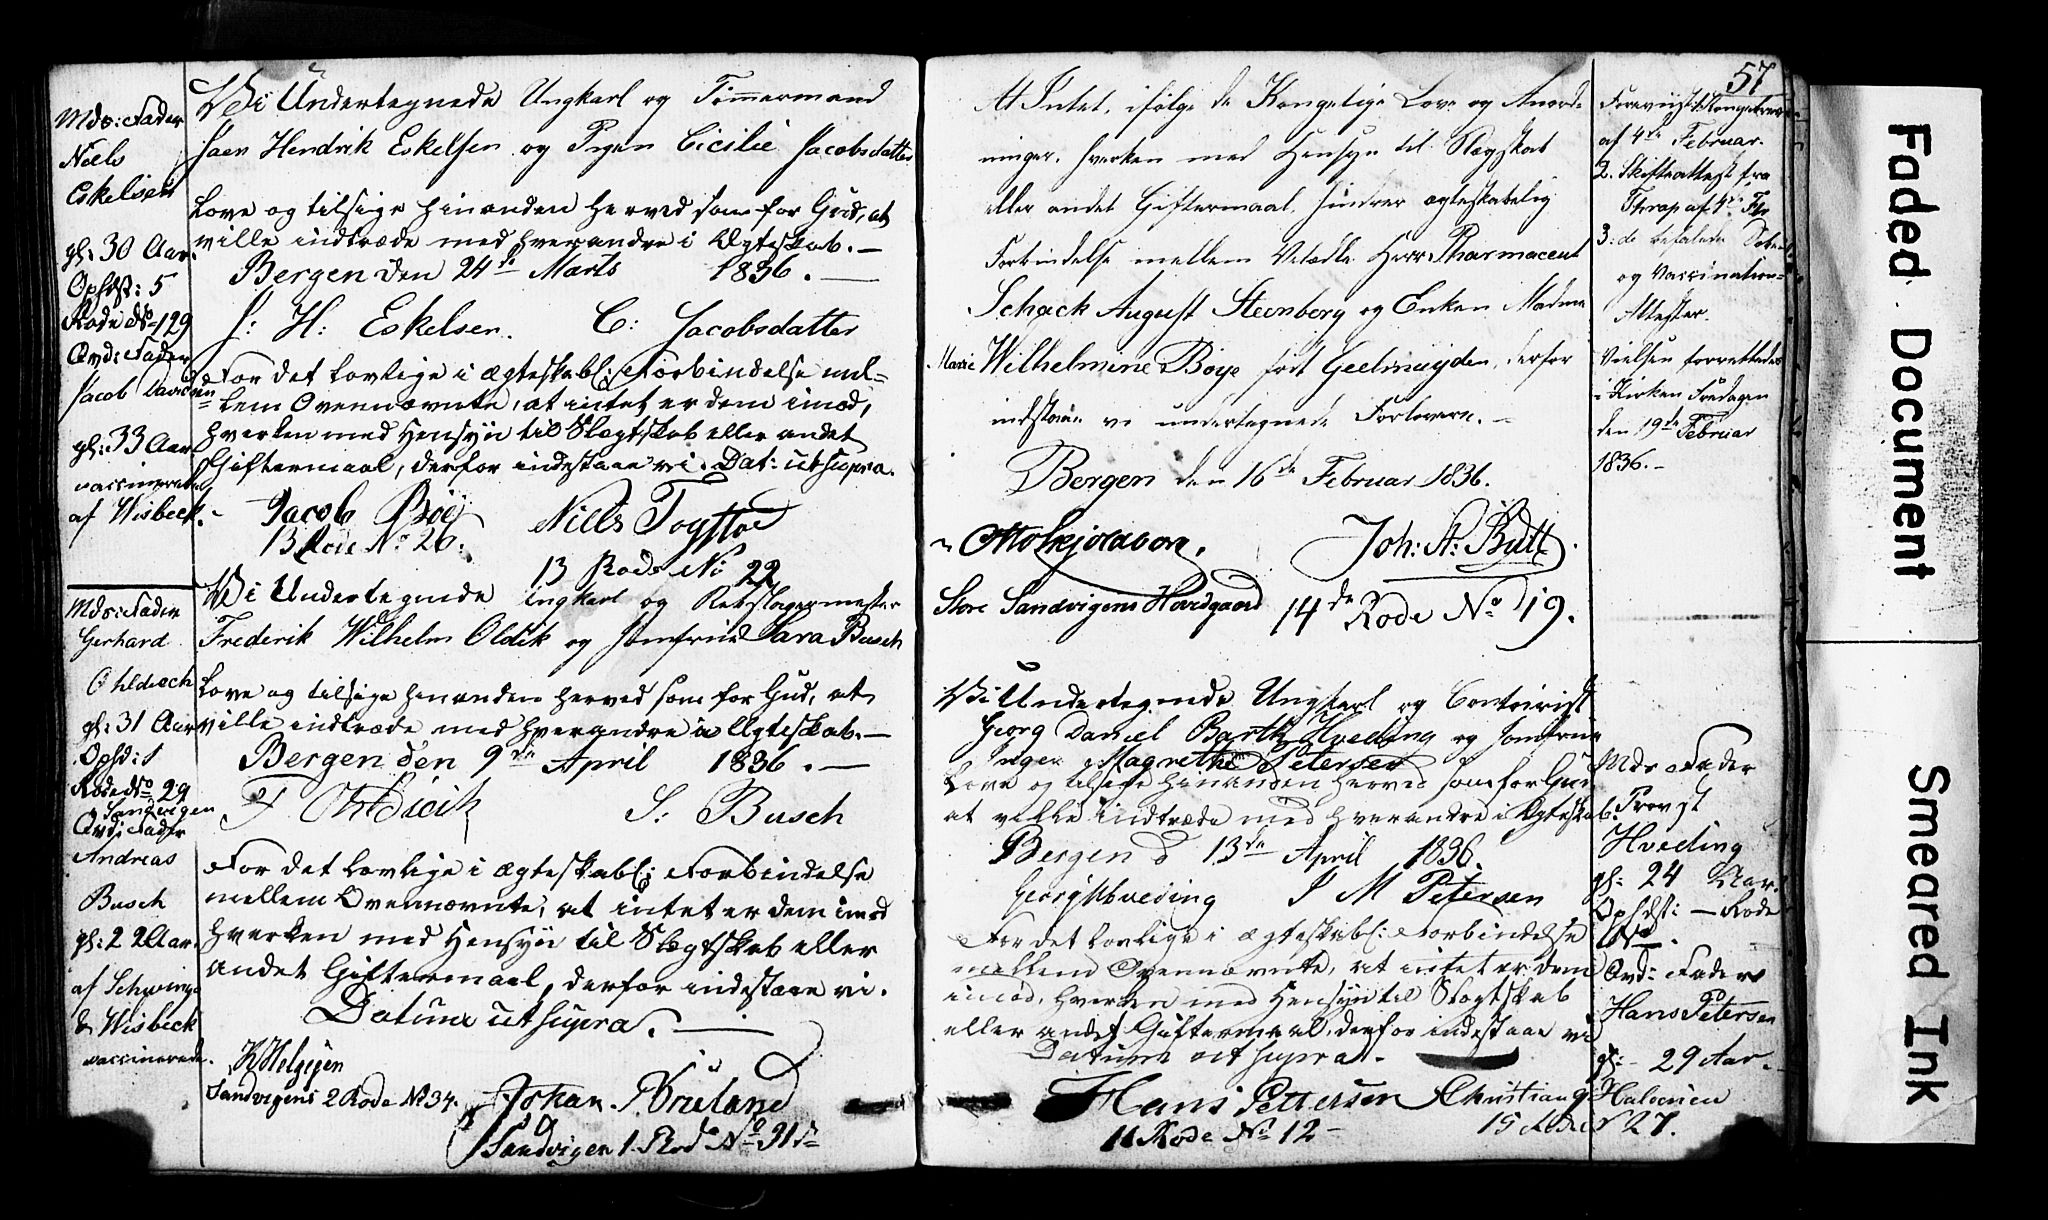 Mds: Fader
Niels
Eskelsen
gl: 30 Aar.
Ophdst: 5
Rode No 129
Qvd: Fader
Jacob Davidsen
gl: 33 Aar
vaccinerede
af Wisbeck.
Vi Undertegnede Ungkarl og Tømmermand
Hendrik Eskelsen og Pigen Cicilie Jacobsdatter
Love og tilsige hinanden herved som for Gud, at
ville indtræde med hverandre i Ægteskab. —
Bergen den 24de Marts 1836. —
J: H: Eskelsen. C: Jacobsdatter
For det lovlige i ægteskabl: Forbindelse mel-
lem Ovennævnte, at intet er dem imod,
hverken med Hensyn til Slægtskab eller andet
Giftermaal, derfor indestaae vi. Dat: ut supra.
Jacob Böe Niels
13 Rode No 26.
13 Rode No 22
Mds: Fader
Gerhard
Ohldiech
gl: 31 Aar
Ophd: 1
Rode No 29
Sandvigen
Qvd: Fader
Andreas
Busch
gl: 22 Aar.
af Schwings
& Wisbeck
vaccinerede.
Vi Undertegnede Ungkarl og Rebslagermester
Frederik Wilhelm Oldik og Jomfrue Sara Busch
Love og tilsige hinanden herved som for Gud, at
ville indtræde med hverandre i Ægteskab. —
Bergen den 9de April 1836. —
F S: Busch
For det lovlige i ægteskabl: Forbindelse
mellem Ovennævnte, at intet er dem imod
hverken med Hensyn til Slægtskab eller
andet Giftermaal, derfor indestaae vi.
Datum ut supra. —
Sandvigens 2 Rode No 34. Johan
Sandvigen 1. Rode No 31
57
At Intet, ifølge de Kongelige Love og Anord-
ninger, hverken med Hensyn til Slægskab
eller andet Giftermaal, hindrer ægteskabelig
Forbindelse mellem Velædle Herr Pharmaceut
Schack August Steenberg og Enken Madme
Marie Wilhelmine Böye født Geelmuyden, derfor
indstaae vi undertegnede Forlovere. —
Bergen den 16de Februar 1836.
Joh: A: Butt
Store Sandvigens Hovedgaard 14de Rode No 19.
Foreviist:
af 4de Februar.
2. Skifteattest fra
af 4de Febr
3: de befalede Døbe-
og Vaccinations-
Attester.
Vielsen forrettedes
i Kirken Fredagen
den 19de Februar
1836. —
Vi Undertegnede Ungkarl og Contoirist
Georg Daniel Barth Hveding og Jomfrue
Inger Magrethe Petersen
Love og tilsige hinanden herved som for Gud
at ville indtræde med hverandre i Ægteskab.
Bergen d 13de April 1836.
Georg Hveding I M Petersen
For det lovlige i ægteskabl: Forbindelse
mellem Ovennævnte, at intet er dem
imod, hverken med Hensyn til Slægtskab
eller andet Giftermaal, derfor indestaae vi
Datum ut supra. —
Hans Pettersen Christian
11 Rode No 12 — 15 Rode No 27.
Mds Fader
Provst
Hveding
gl: 24 Aar.
Ophdst: — Rode
No — .
Qvd: Fader
Hans Petersen
gl: - 29 Aar. —
Faded Document
Smeared Ink